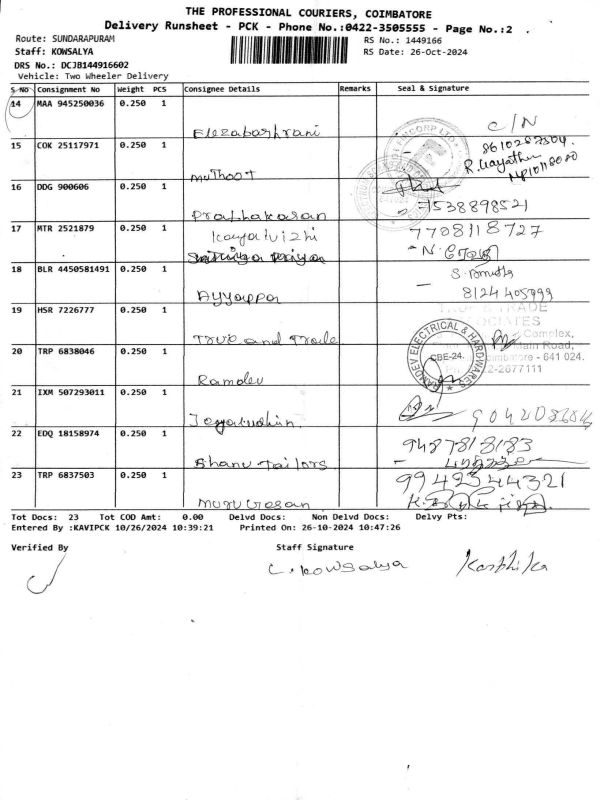 THE PROFESSIONAL COURIERS, COIMBATORE
Delivery Runsheet - PCK - Phone No.:0422-3505555 - Page No.:2
Route: SUNDARAPURAM
RS No.: 1449166
Staff: KOWSALYA
RS Date: 26-Oct-2024
DRS No.: DCJB144916602
Vehicle: Two Wheeler Delivery
S.NO Consignment No Weight PCS Consignee Details Remarks Seal & Signature
14 MAA 945250036 0.250 1
C/N
15 COK 25117971 0.250 1
8610257504
muthoot
16 DDG 900606 0.250 1
Prabhakaran
7538898521
17 MTR 2521879 0.250 1
Kayalvizhi
7708118727
18 BLR 4450581491 0.250 1
Ayyappa
8124405999
19 HSR 7226777 0.250 1
True and Trade
TRUE & TRADE
20 TRP 6838046 0.250 1
Complex,
Main Road,
Coimbatore - 641 024.
2-2677111
RAMDEV ELECTRICAL & HARDWARES
CBE-24.
Ramdev
21 IXM 507293011 0.250 1
22 EDQ 18158974 0.250 1
9487818183
Bhanu Tailors
23 TRP 6837503 0.250 1
9942344321
Murugesan
Tot Docs: 23 Tot COD Amt: 0.00 Delvd Docs: Non Delvd Docs: Delvy Pts:
Entered By :KAVIPCK 10/26/2024 10:39:21 Printed On: 26-10-2024 10:47:26
Verified By Staff Signature
C. Kowsalya
Karthika